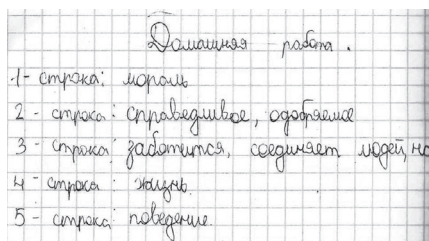 Домашняя работа.
1 - строка: мораль
2 - строка: справедливое, одобряемое
3 - строка: заботится, соединяет людей, на
4 - строка: жизнь.
5 - строка: поведение.